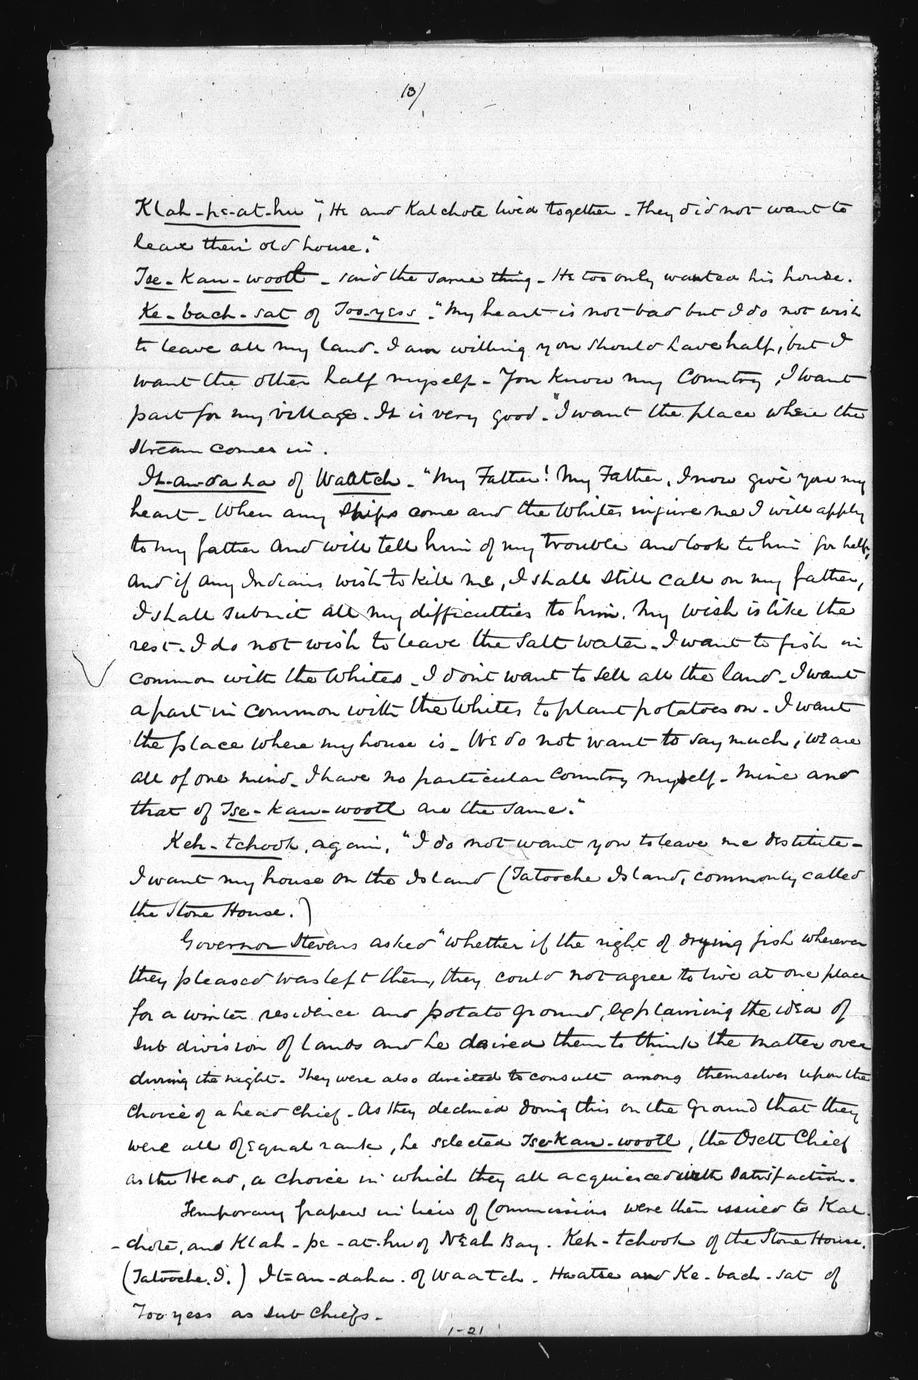 13/
Klah-pe-at-hu ", He and Kalchote lived together - They did not want to
leave their old house."
Tse-Kaw-wootl - said the same thing - He too only wanted his house.
Ke-bach-sat of Tooyess - "My heart is not bad but I do not wish
to leave all my land. I am willing you should have half, but I
want the other half myself - You know my Country, I want
part for my village. It is very good." I want the place where the
stream comes in.
It-an-da-ha of Waatch - "My Father! My Father, I now give you my
heart - When any Ships come and the Whites injure me I will apply
to my father and will tell him of my trouble and look to him for help,
and if any Indians wish to kill me, I shall still call on my father,
I shall submit all my difficulties to him. My wish is like the
rest - I do not wish to leave the Salt water - I want to fish in
common with the Whites - I don't want to sell all the land - I want
a part in common with the Whites to plant potatoes on - I want
the place where my house is - We do not want to say much, we are
all of one mind - I have no particular Country myself - Mine and
that of Tse-kaw-wootl are the same."
Keh-tchook, again, "I do not want you to leave me destitute -
I want my house on the Island (Tatooche Island, commonly called
the Stone House.)
Governor Stevens asked "whether if the right of drying fish wherever
they pleased was left them, they could not agree to live at one place
for a winter residence and potato ground, explaining the idea of
Sub division of lands and he desired them to think the matter over
during the night. They were also directed to consult among themselves upon the
choice of a head chief - As they declined doing this on the Ground that they
were all of Equal rank, he selected Tse-kaw-wootl, the Osett Chief
as the Head, a choice in which they all acquiesced with Satisfaction -
Temporary papers in lieu of Commissions were then issued to Kal-
-chote, and Klah-pe-at-hu of Neah Bay. Keh-tchook of the Stone House,
(Tatooche. I.) It-an-daha. of Waatch. Haatse and Ke-bach-sat of
Tooyess as Sub Chiefs -
1-21